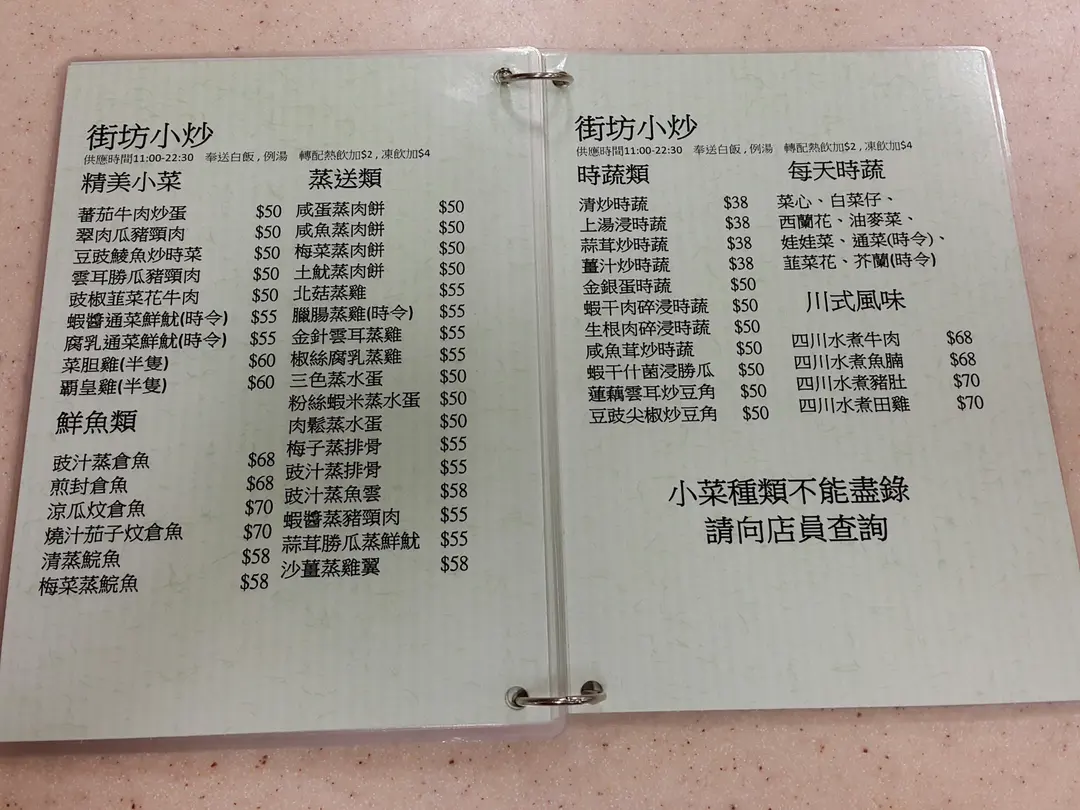 街坊小炒
供應時間11:00-22:30 奉送白飯 , 例湯 轉配熱飲加$2 , 凍飲加$4
精美小菜
蕃茄牛肉炒蛋 $50
翠肉瓜豬頸肉 $50
豆豉鯪魚炒時菜 $50
雲耳勝瓜豬頸肉 $50
豉椒韮菜花牛肉 $50
蝦醬通菜鮮魷(時令) $55
腐乳通菜鮮魷(時令) $55
菜胆雞(半隻) $60
霸皇雞(半隻) $60
鮮魚類
豉汁蒸倉魚 $68
煎封倉魚 $68
涼瓜炆倉魚 $70
燒汁茄子炆倉魚 $70
清蒸鯇魚 $58
梅菜蒸鯇魚 $58
蒸送類
咸蛋蒸肉餅 $50
咸魚蒸肉餅 $50
梅菜蒸肉餅 $50
土魷蒸肉餅 $50
北菇蒸雞 $55
臘腸蒸雞(時令) $55
金針雲耳蒸雞 $55
椒絲腐乳蒸雞 $55
三色蒸水蛋 $50
粉絲蝦米蒸水蛋 $50
肉鬆蒸水蛋 $50
梅子蒸排骨 $55
豉汁蒸排骨 $55
豉汁蒸魚雲 $58
蝦醬蒸豬頸肉 $55
蒜茸勝瓜蒸鮮魷 $55
沙薑蒸雞翼 $58
街坊小炒
供應時間11:00-22:30 奉送白飯 , 例湯 轉配熱飲加$2 , 凍飲加$4
時蔬類
清炒時蔬 $38
上湯浸時蔬 $38
蒜茸炒時蔬 $38
薑汁炒時蔬 $38
金銀蛋時蔬 $50
蝦干肉碎浸時蔬 $50
生根肉碎浸時蔬 $50
咸魚茸炒時蔬 $50
蝦干什菌浸勝瓜 $50
蓮藕雲耳炒豆角 $50
豆豉尖椒炒豆角 $50
每天時蔬
菜心、白菜仔、
西蘭花、油麥菜、
娃娃菜、通菜(時令)、
韮菜花、芥蘭(時令)
川式風味
四川水煮牛肉 $68
四川水煮魚腩 $68
四川水煮豬肚 $70
四川水煮田雞 $70
小菜種類不能盡錄
請向店員查詢